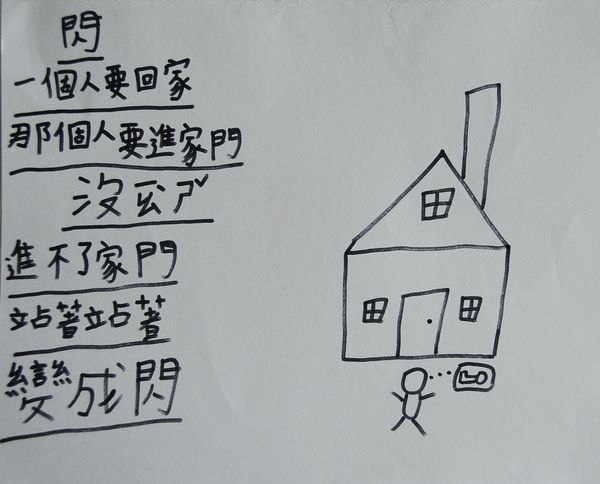 閃
一個人要回家
那個人要進家門
沒
進不了家門
站著站著
變成閃